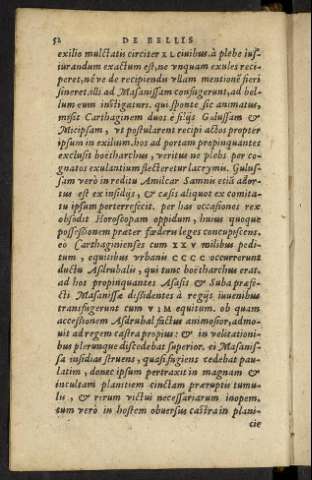 52 DE BELLIS
exilio mulctatis circiter XL ciuibus à plebe iuſ-
iurandum exactum eſt, ne vnquam exules reci-
peret, néve de recipiendis vllam mentionē fieri
ſineret. illi ad Maſaniſſam confugerunt, ad bel-
lum eum inſtigaturi. qui ſponte ſic animatus,
miſit Carthaginem duos è filijs Guluſſam &
Micipſam, vt poſtularent recipi actos propter
ipſum in exilium. hos ad portam propinquantes
excluſit boëtharchus, veritus ne plebs per co-
gnatos exulantium flecteretur lacrymis. Guluſ-
ſam verò in reditu Amilcar Samnis etiā ador-
tus eſt ex inſidijs, & cæſis aliquot ex comita-
tu ipſum perterrefecit. per hai occaſiones rex
obſedit Horoſcopam oppidum, huius quoque
poſſeſſionem præter fœderis leges concupiſcens.
eo Carthaginienſes cum XXV milibus pedi-
tum, equitibus vrbanis CCCC occurrerunt
ductu Aſdrubalis, qui tunc boëtharchus erat.
ad hos propinquantes Aſaſis & Suba præfe-
cti Maſaniſſæ diſsidentes à regijs iuuenibus
transfugerunt cum VIM equitum. ob quam
acceſſionem Aſdrubal factus animoſior, admo-
uit ad regem caſtra propius: & in velitationi-
bus plerunque diſcedebat ſuperior. at Maſaniſ-
ſa inſidias ſtruens, quaſi fugiens cedebat pau-
latim, donec ipſum pertraxit in magnam &
incultam planitiem cinctam præruptis tumu-
lis, & rerum victui neceſſariarum inopem.
tum verò in hoſtem obuerſus caſtra in plani-
cie